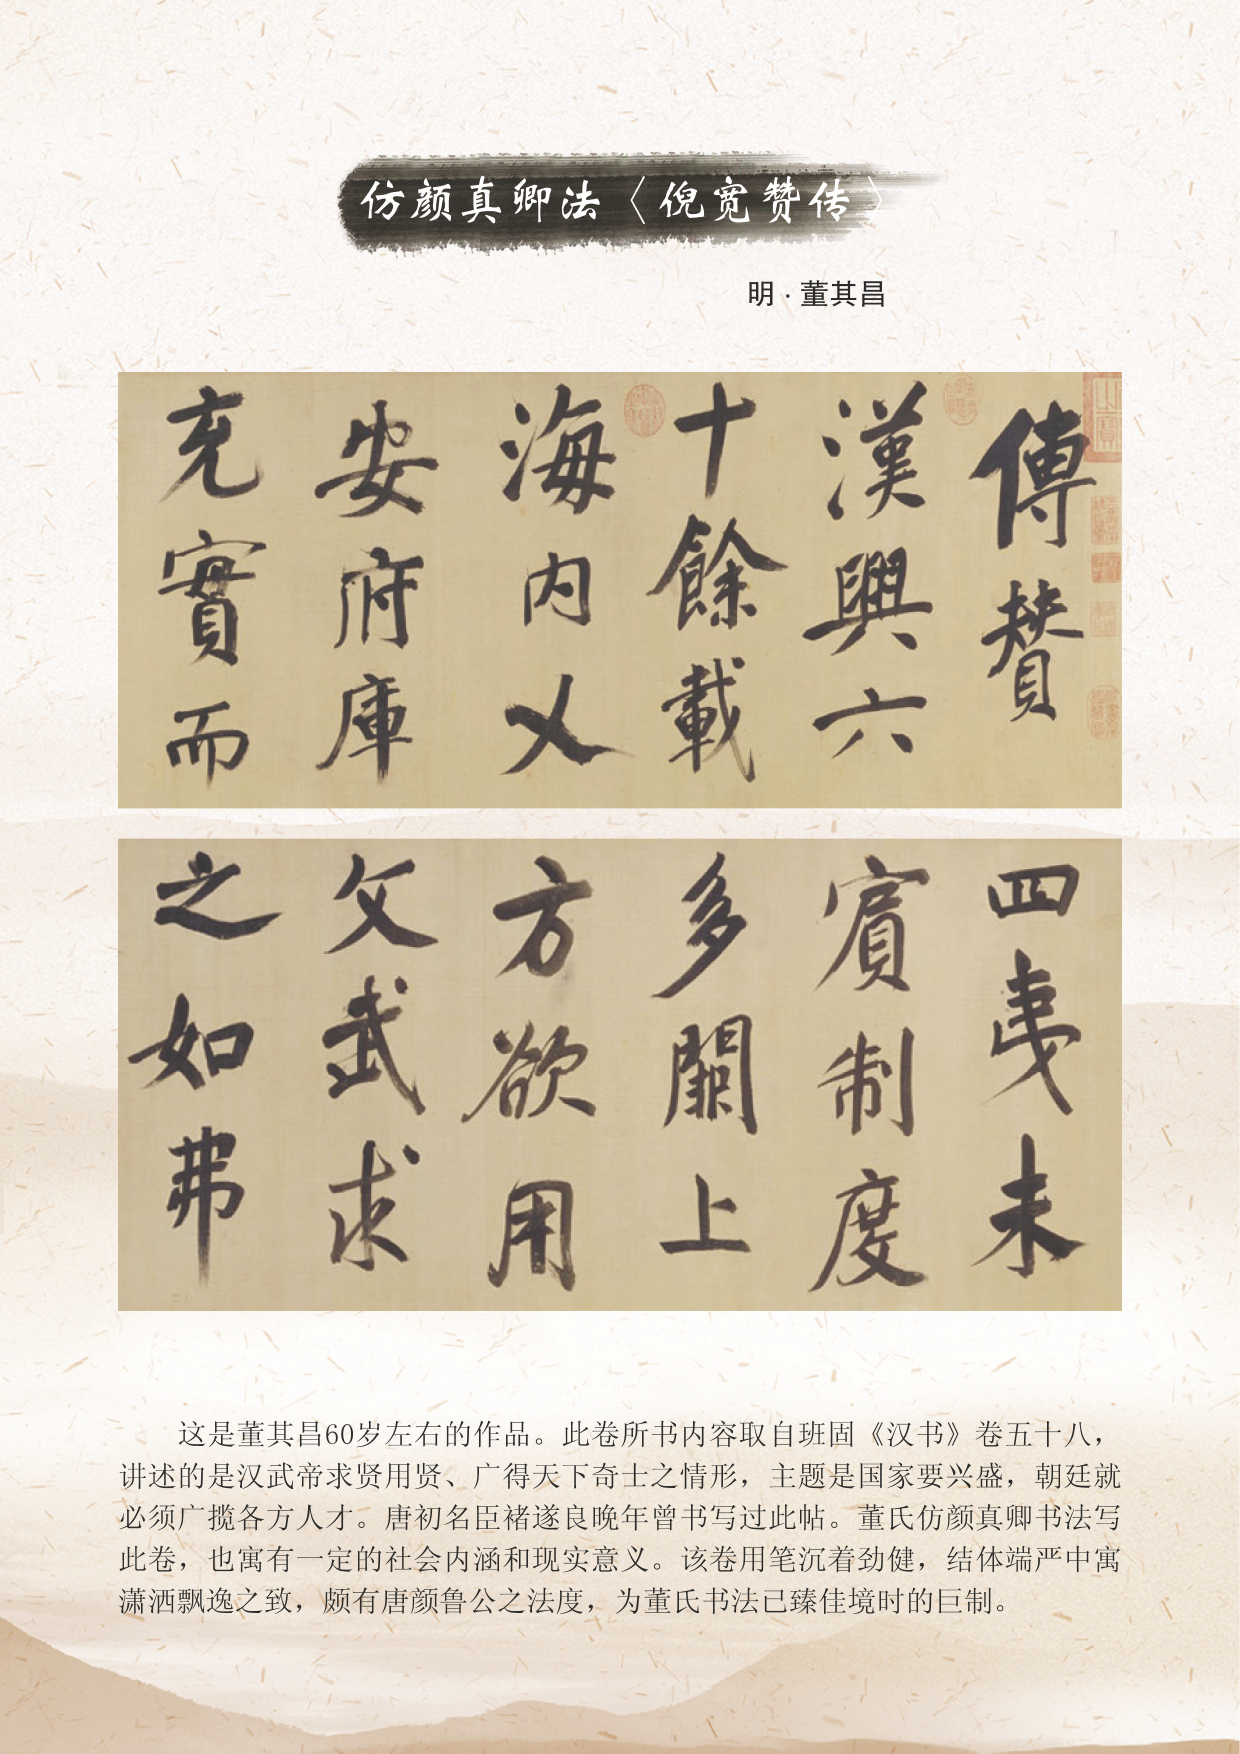 仿颜真卿法〈倪宽赞传〉
明·董其昌
傳贊
漢興六
十餘載
海内乂
安府庫
充實而
四夷未
賓制度
多闕上
方欲用
文武求
之如弗
这是董其昌60岁左右的作品。此卷所书内容取自班固《汉书》卷五十八，
讲述的是汉武帝求贤用贤、广得天下奇士之情形，主题是国家要兴盛，朝廷就
必须广揽各方人才。唐初名臣褚遂良晚年曾书写过此帖。董氏仿颜真卿书法写
此卷，也寓有一定的社会内涵和现实意义。该卷用笔沉着劲健，结体端严中寓
潇洒飘逸之致，颇有唐颜鲁公之法度，为董氏书法已臻佳境时的巨制。